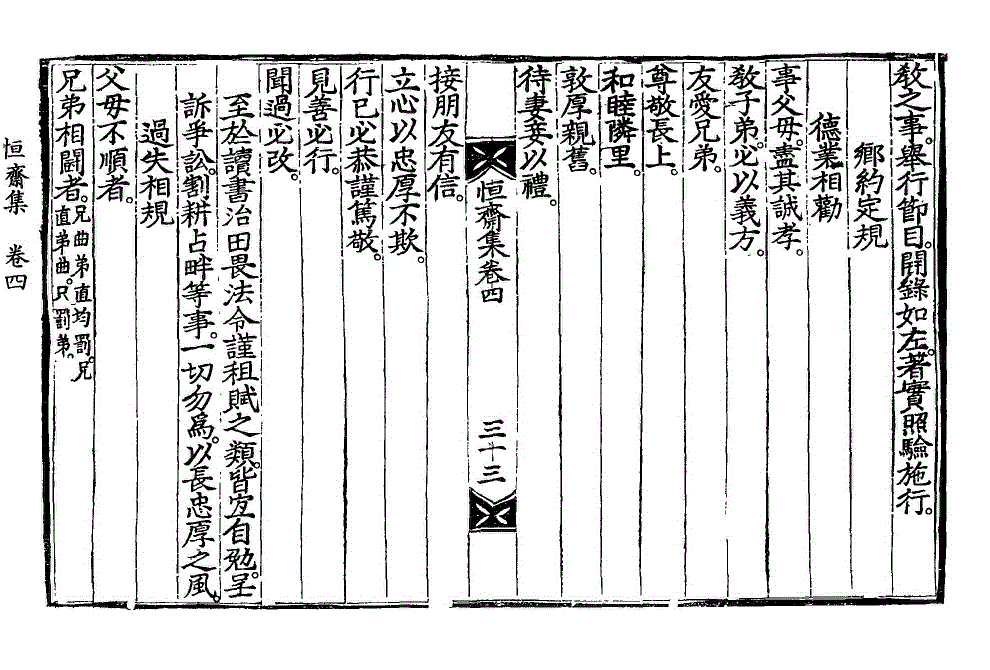 教之事。舉行節目。開錄如左。著實照驗施行。
鄉約定規
德業相勸
事父母。盡其誠孝。
敎子弟。必以義方。
友愛兄弟。
尊敬長上。
和睦隣里。
敦厚親舊。
待妻妾以禮。
恒齋集卷四
三十三
接朋友有信。
立心以忠厚不欺。
行己必恭謹篤敬。
見善必行。
聞過必改。
至於讀書治田畏法令謹租賦之類。皆宜自勉。至
訴爭訟。割耕占畔等事。一切勿爲。以長忠厚之風。
過失相規
父母不順者。
兄弟相鬪者。兄曲弟直均罰。兄
直弟曲。只罰弟。
恒齋集 卷四